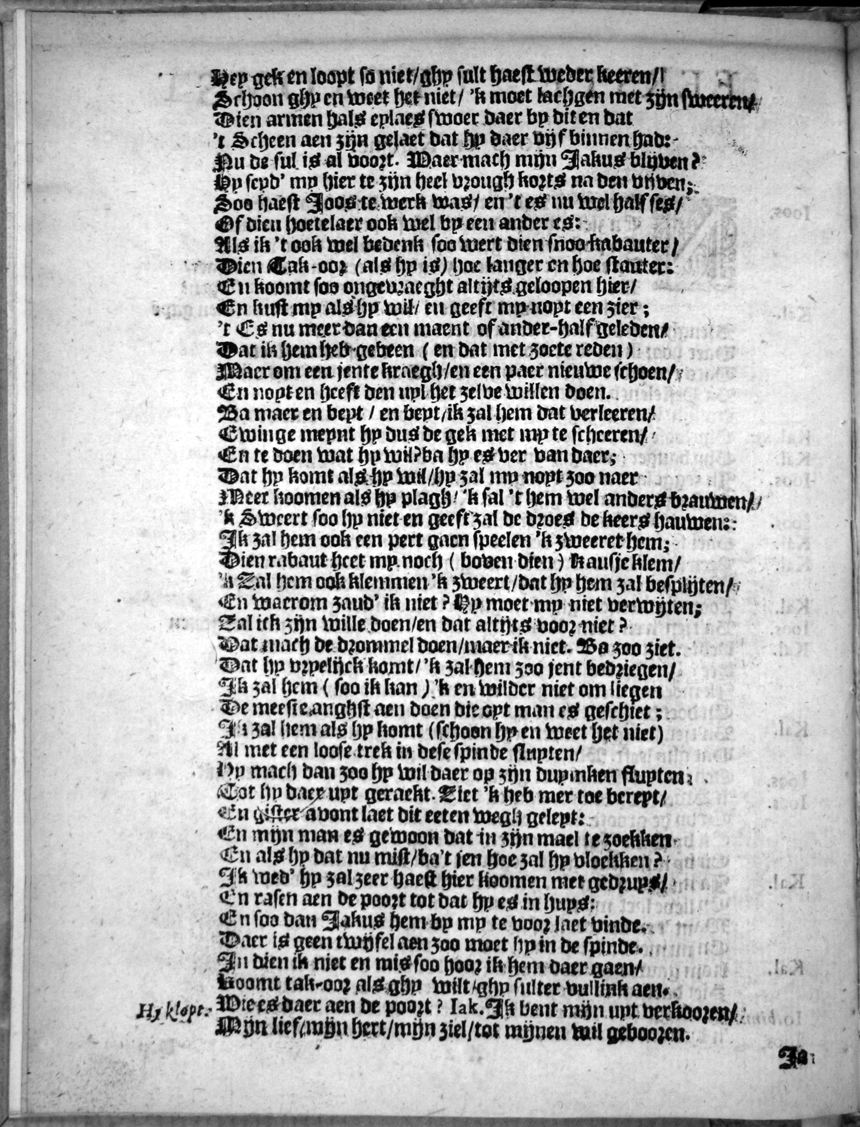 Hey gek en loopt so niet/ghy sult haest weder keeren/
Schoon ghy en weet het niet/ 'k moet lachgen met zijn sweeren/
Dien armen hals eylaes swoer daer by dit en dat
't Scheen aen zijn gelaet dat hy daer vijf binnen had:
Nu de sul is al voort. Waer mach mijn Jakus blijven?
Hy seyd' my hier te zijn heel vrough korts na den vijven;
Soo haest Joos te werk was/ en 't es nu wel half ses/
Of dien hoetelaer ook wel by een ander es:
Als ik 't ook wel bedenk soo wert dien snoo kabauter/
Dien Tak-oor (als hy is) hoe langer en hoe stauter:
En koomt soo ongevraeght altijts geloopen hier/
En kust my als hy wil/ en geeft my noyt een zier;
't Es nu meer dan een maent of ander-half geleden/
Dat ik hem heb gebeen (en dat met zoete reden)
Maer om een jente kraegh/en een paer nieuwe schoen/
En noyt en heeft den uyl het zelve willen doen.
Ba maer en beyt/ en beyt/ik zal hem dat verleeren/
Ewinge meynt hy dus de gek met my te scheeren/
En te doen wat hy wil?ba hy es ver van daer;
Dat hy komt als hy wil/hy zal my noyt zoo naer
Meer koomen als hy plagh/ 'k sal 't hem wel anders brauwen/
'k Sweert soo hy niet en geeft zal de droes de keers hauwen:
Ik zal hem ook een pert gaen speelen 'k zweeret hem;
Dien rabaut heet my noch (boven dien) Kausje klem/
'k Zal hem ook klemmen 'k zweert/dat hy hem zal besplijten/
En waerom zaud' ik niet? Hy moet my niet verwijten;
Zal ick zijn wille doen/en dat altijts voor niet?
Dat mach de drommel doen/maer ik niet. Ba zoo ziet.
Dat hy vryelijck komt/'k zal hem zoo jent bedriegen/
Ik zal hem (soo ik kan) 'k en wilder niet om liegen
De meeste anghst aen doen die oyt man es geschiet;
Ik zal hem als hy komt (schoon hy en weet het niet)
Al met een loose trek in dese spinde sluyten/
Hy mach dan zoo hy wil daer op zijn duymken fluyten
Tot hy daer uyt geraekt. Ziet 'k heb mer toe bereyt/
En gister avont laet dit eeten wegh geleyt:
En mijn man es gewoon dat in zijn mael te zoekken
En als hy dat nu mist/ba't jen hoe zal hy vloekken?
Ik wed' hy zal zeer haest hier koomen met gedruys/
En rasen aen de poort tot dat hy es in huys:
En soo dan Jakus hem by my te voor laet vinde.
Daer is geen twijfel aen zoo moet hy in de spinde.
In dien ik niet en mis soo hoor ik hem daer gaen/
Koomt tak-oor als ghy wilt/ghy sulter vullink aen.
Hy klopt. Wie es daer aen de poort? Iak. Ik bent mijn uyt verkooren/
Mijn lief/mijn hert/mijn ziel/tot mijnen wil gebooren.
Ja